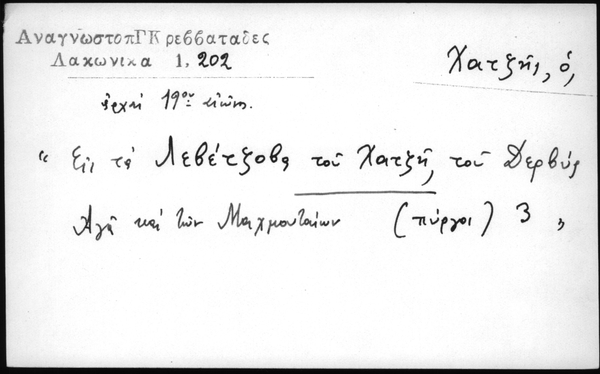 ΑναγνωστοπΓΚρεββαταδες
Λακωνικα 1, 202
Χατζῆς, ὁ,
ἀρχὴ 19ου αἰῶνος.
"Εἰς τὰ Λεβέτζοβα τοῦ Χατζῆ, τοῦ Δερβὺς
Ἀγᾶ καὶ τῶν Μαχμουταίων (πύργοι) 3 "